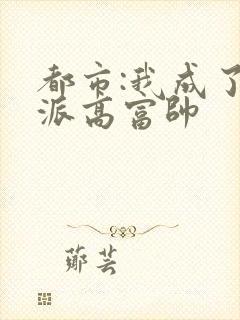 都市:我成了
派高富帥
鄭芸